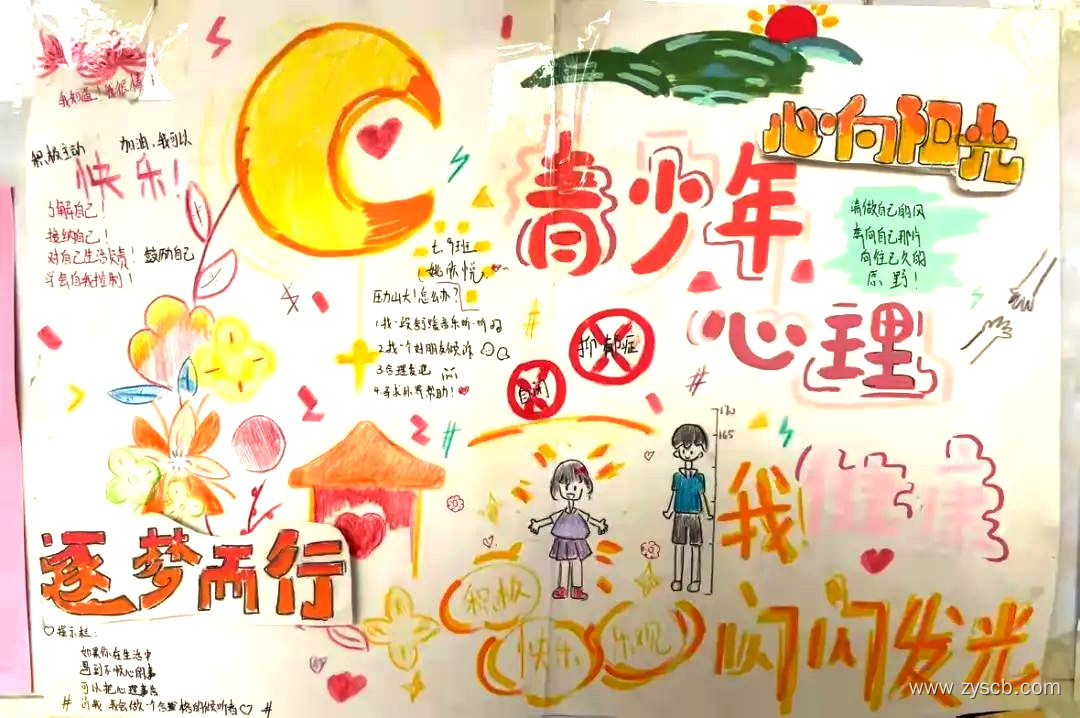 我知道！我很棒
积极主动
加油，我可以
快乐！
了解自己！
接纳自己！
对自己生活负责！
鼓励自己
学会自我控制！
七.9班
姚欣悦
压力山大！怎么办？
2.找一个好朋友倾诉
3.合理发泄
4.寻求外界帮助！
青少年
心理
心向阳光
请做自己的风
奔向自己那片
向往已久的
原野！
抑郁症
自闭
170
165
我
健康
闪闪发光
积极
快乐
乐观
逐梦而行
提示栏：
如果你在生活中
遇到不顺心的事
可以把心理事告
www.zyscb.com